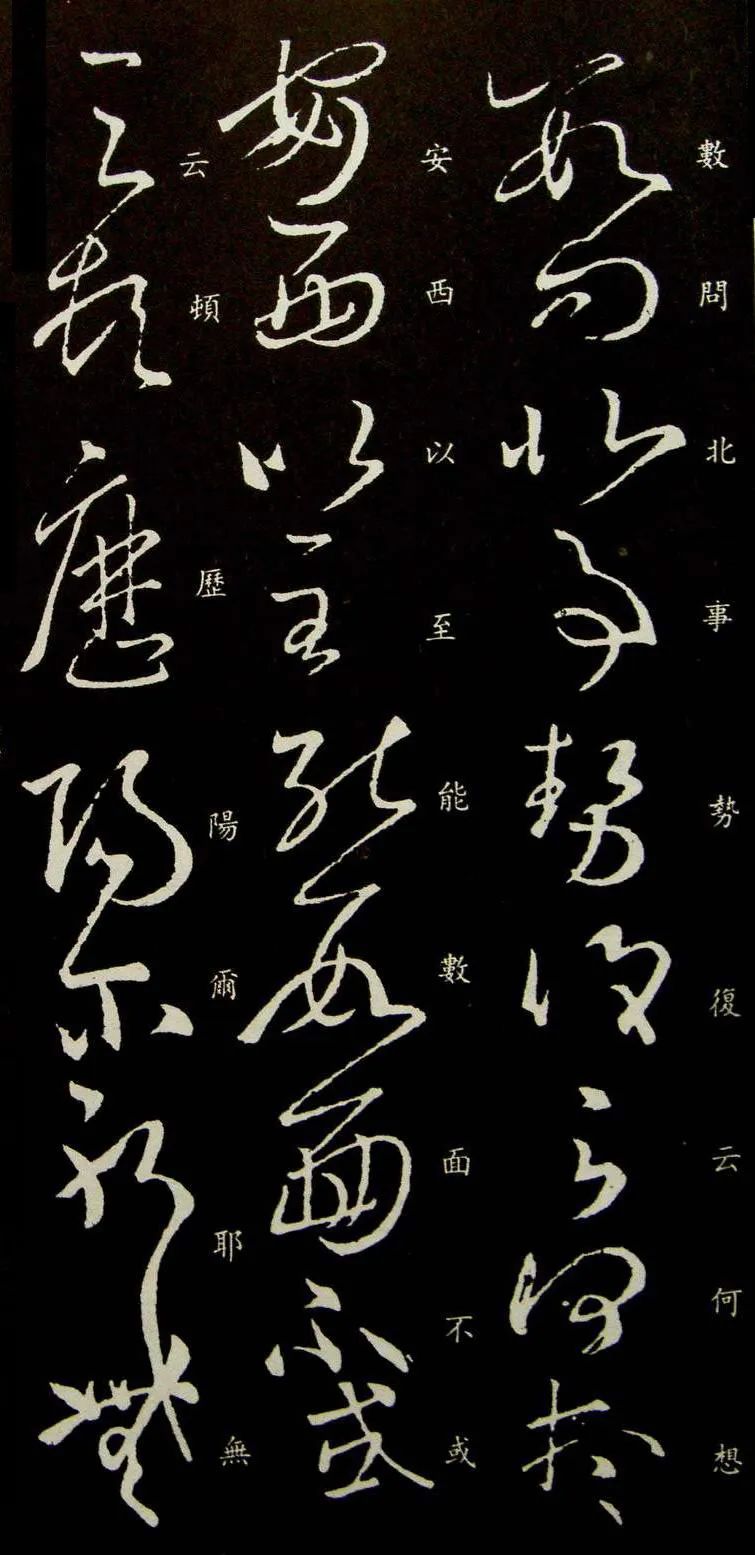 數問北事勢復云何想
安西以至能數面不或
云頓歷陽爾耶無